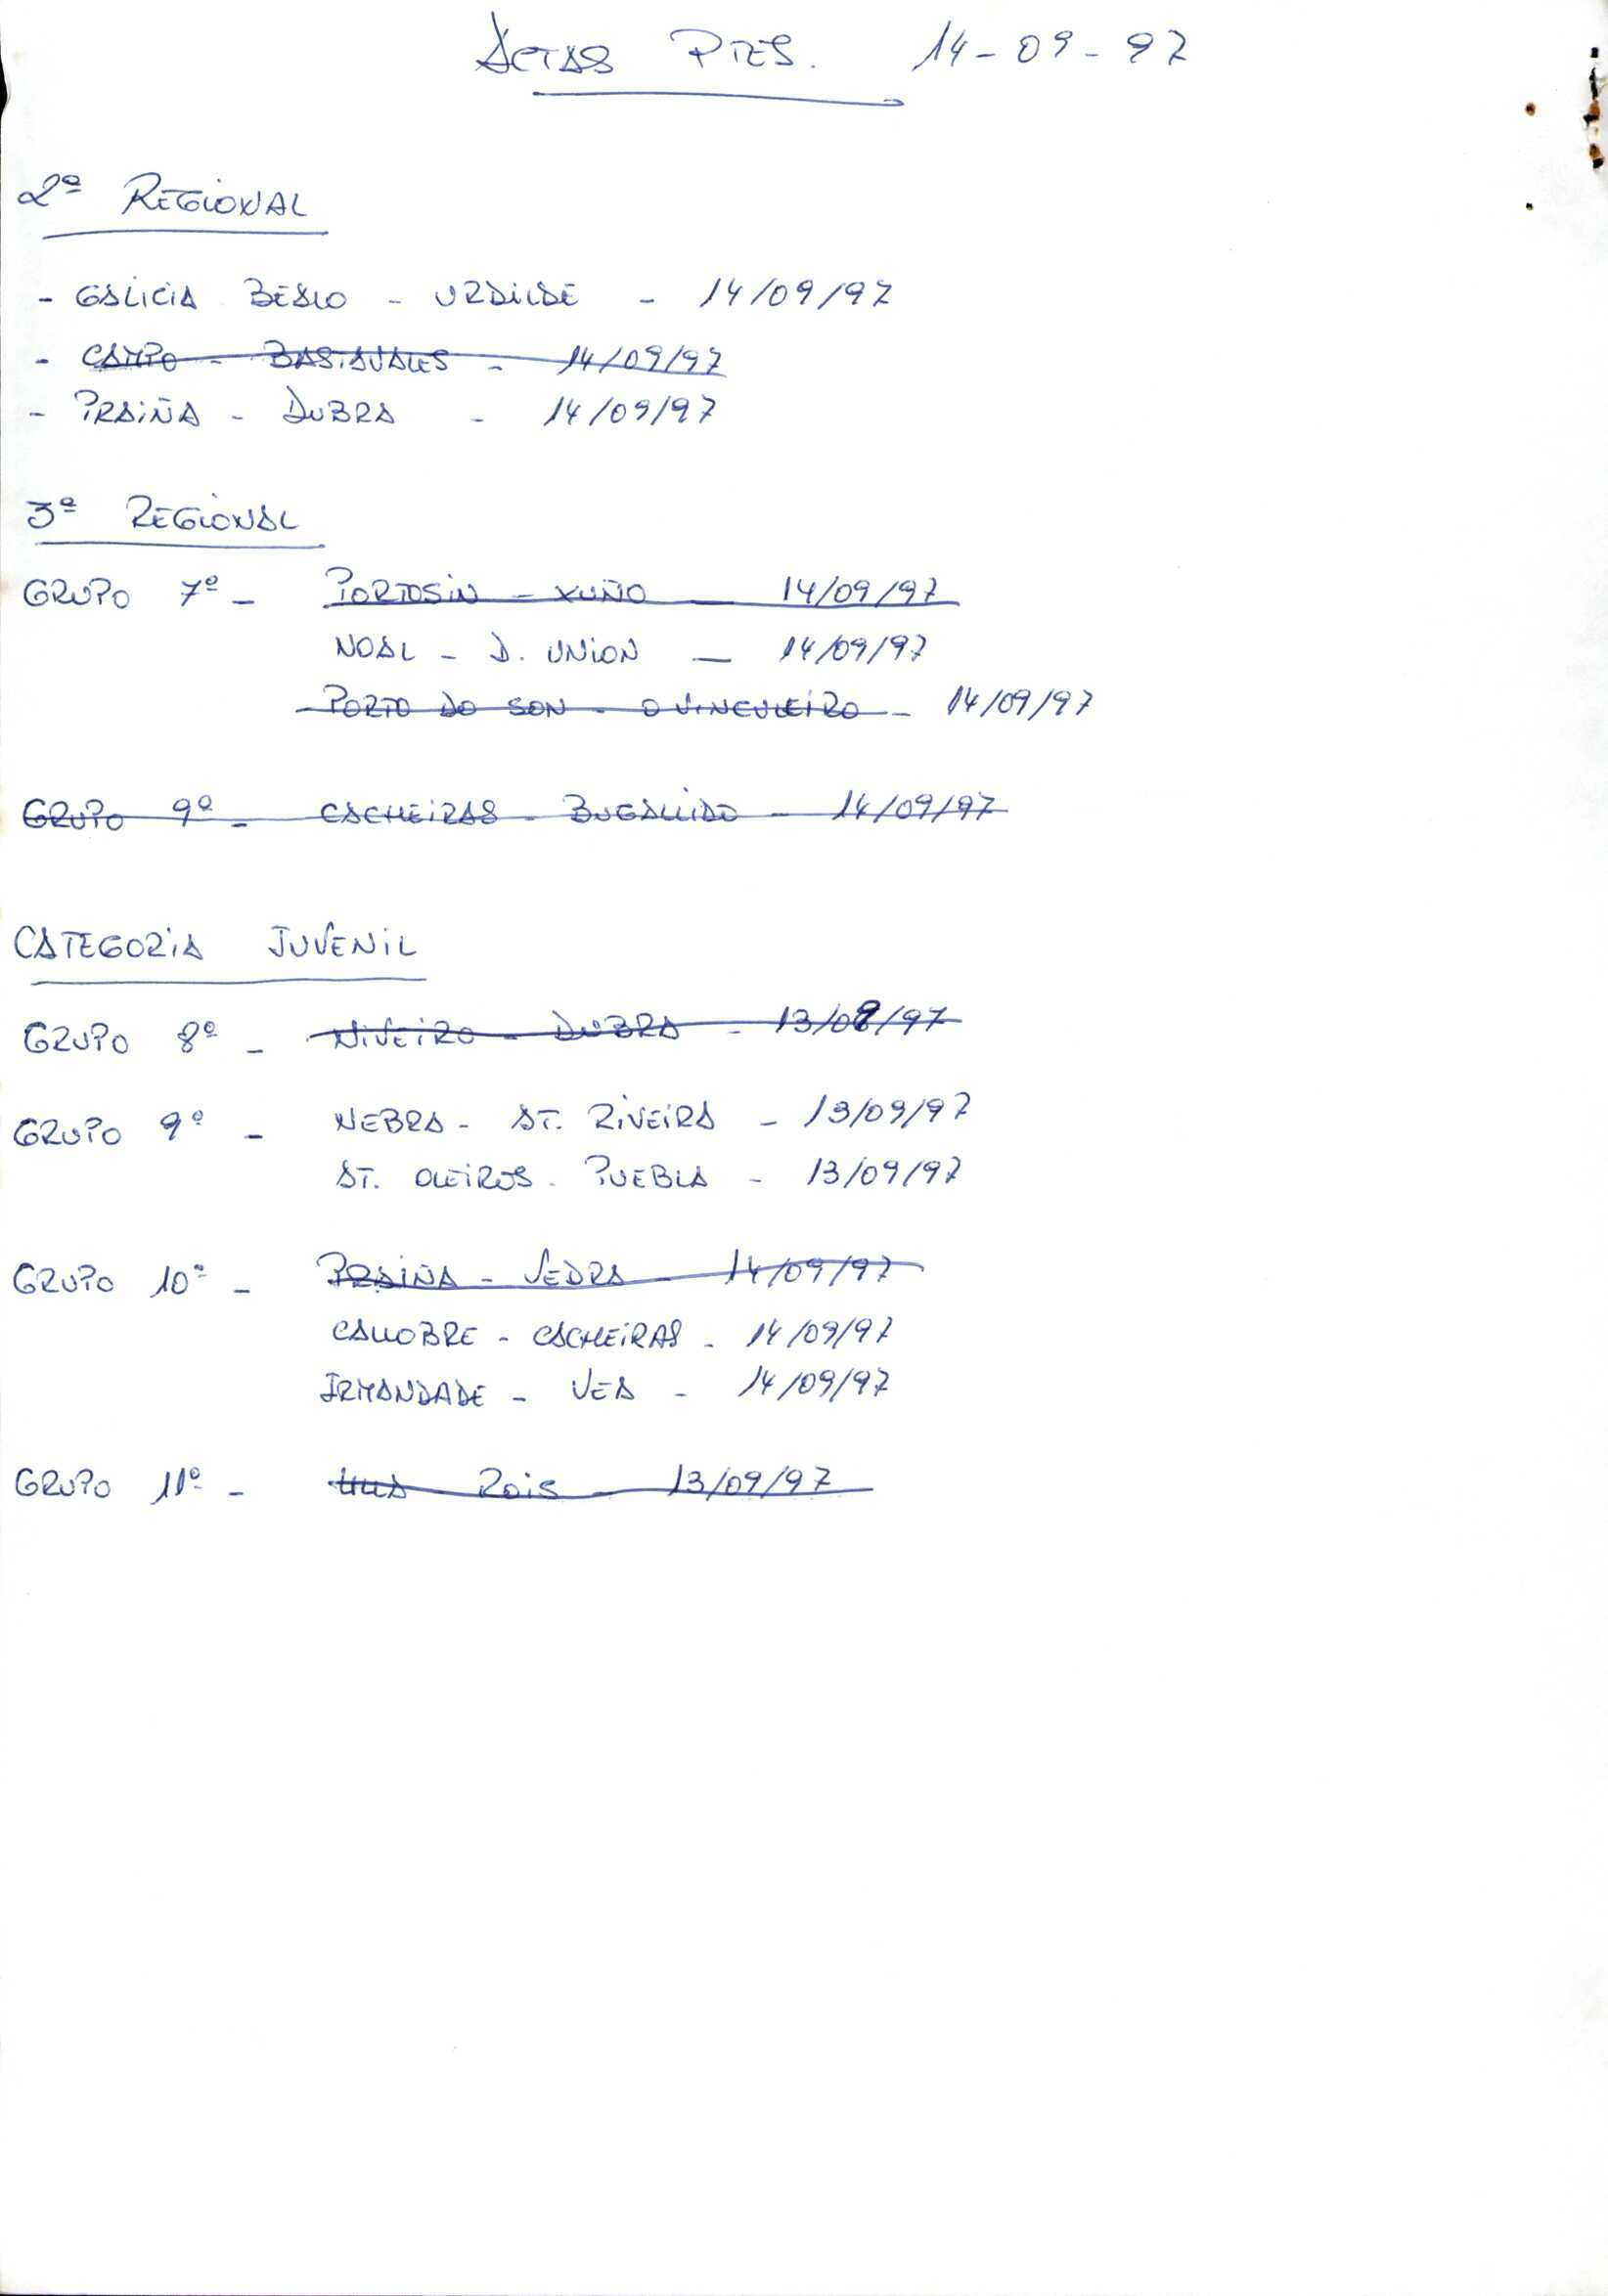 ACTAS PTES. 14-09-97
2ª REGIONAL
- GALICIA BEALO - URDILDE - 14/09/97
- CAMPO - BASTAVALES - 14/09/97
- PRAIÑA - DUBRA - 14/09/97
3ª REGIONAL
GRUPO 7º - PORTOSIN - XUÑO - 14/09/97
NOAL - D. UNION - 14/09/97
PORTO DO SON - O VINCULEIRO - 14/09/97
GRUPO 9º - CACHEIRAS - BUGALLIDO - 14/09/97
CATEGORIA JUVENIL
GRUPO 8º - NIVEIRO - DUBRA - 13/09/97
GRUPO 9º - NEBRA - AT. RIVEIRA - 13/09/97
AT. OLEIROS - PUEBLA - 13/09/97
GRUPO 10º - PRAIÑA - VEDRA - 14/09/97
CALLOBRE - CACHEIRAS - 14/09/97
IRMANDADE - VEA - 14/09/97
GRUPO 11º - ROIS - 13/09/97